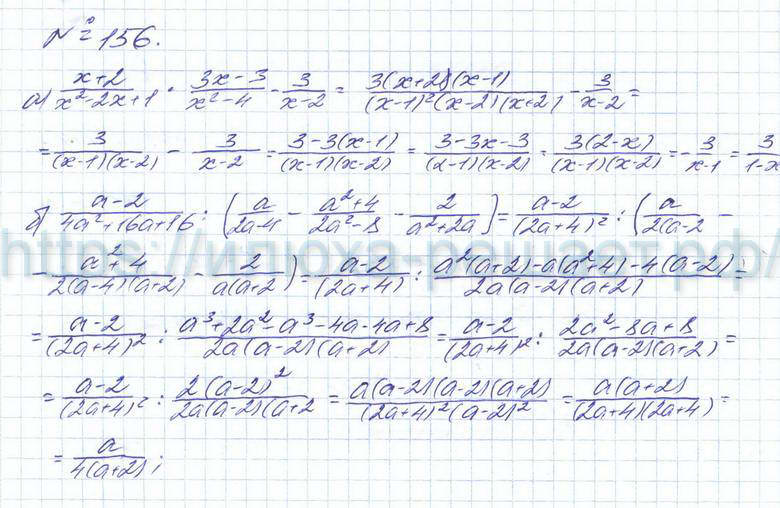 № 156.
а) (x+2)/(x²-2x+1) · (3x-3)/(x²-4) - 3/(x-2) = 3(x+2)(x-1)/((x-1)²(x-2)(x+2)) - 3/(x-2) =
= 3/((x-1)(x-2)) - 3/(x-2) = (3-3(x-1))/((x-1)(x-2)) = (3-3x-3)/((x-1)(x-2)) = 3(2-x)/((x-1)(x-2)) = -3/(x-1) = 3/(1-x
б) (a-2)/(4a²+16a+16) : (a/(2a-4) - (a²+4)/(2a²-8) - 2/(a²+2a)) = (a-2)/(2a+4)² : (a/(2(a-2) -
- (a²+4)/(2(a-4)(a+2)) - 2/(a(a+2)) = (a-2)/(2a+4) : (a²(a+2)-a(a²+4)-4(a-2))/(2a(a-2)(a+2)) =
= (a-2)/(2a+4)² : (a³+2a²-a³-4a-4a+8)/(2a(a-2)(a+2) = (a-2)/(2a+4)² : (2a²-8a+8)/(2a(a-2)(a+2) =
= (a-2)/(2a+4)² : 2(a-2)²/(2a(a-2)(a+2 = a(a-2)(a-2)(a+2)/((2a+4)²(a-2)²) = a(a+2)/((2a+4)(2a+4)) =
= a/(4(a+2));
https://илюха-решает.рф/